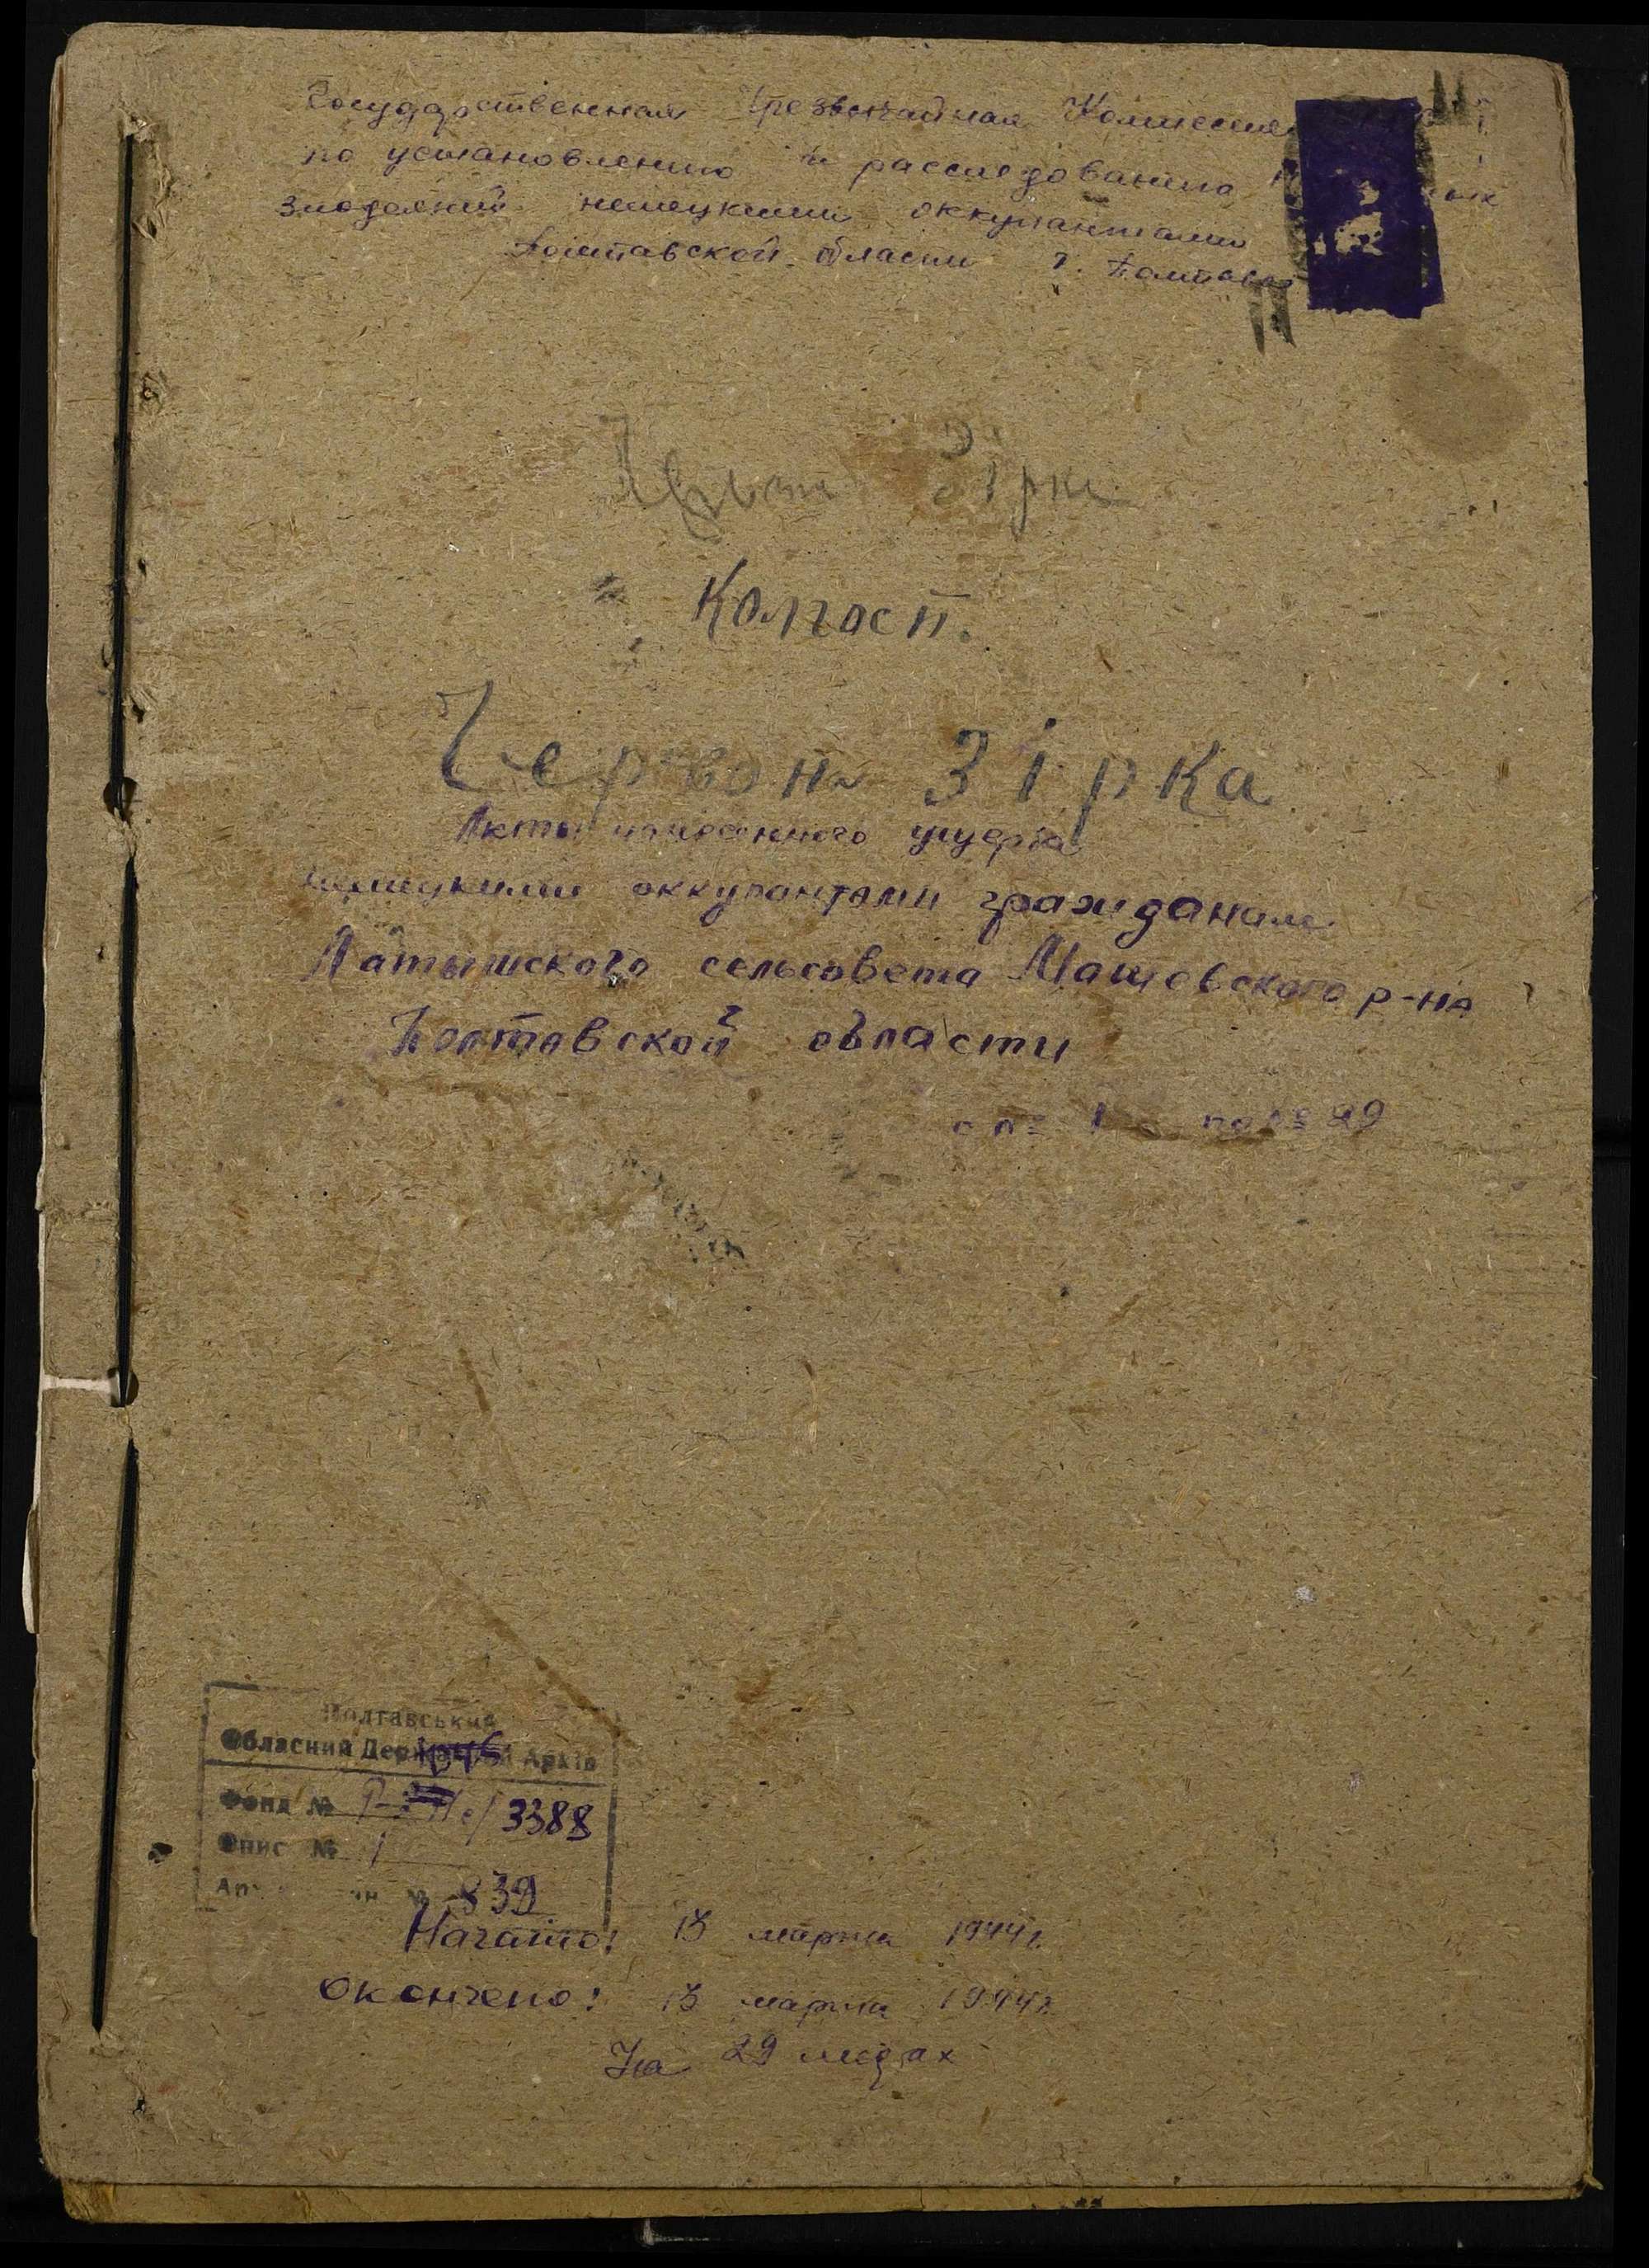 Государственная Чрезвычайная Комиссия
по установлению и расследованию
злодеяний немецкими оккупантами
Полтавской области г. Полтава
Зірка
Колгосп.
Червона Зірка
Акты нанесенного ущерба
немецкими оккупантами гражданам
Латышского сельсовета Машевского р-на
Полтавской области
с № 1 по № 29
Полтавський
Обласний Державний Архів
Фонд № Р- 3388
Опис № 1
839
Начато: 13 марта 1944г.
Окончено: 13 марта 1944г.
На 29 листах